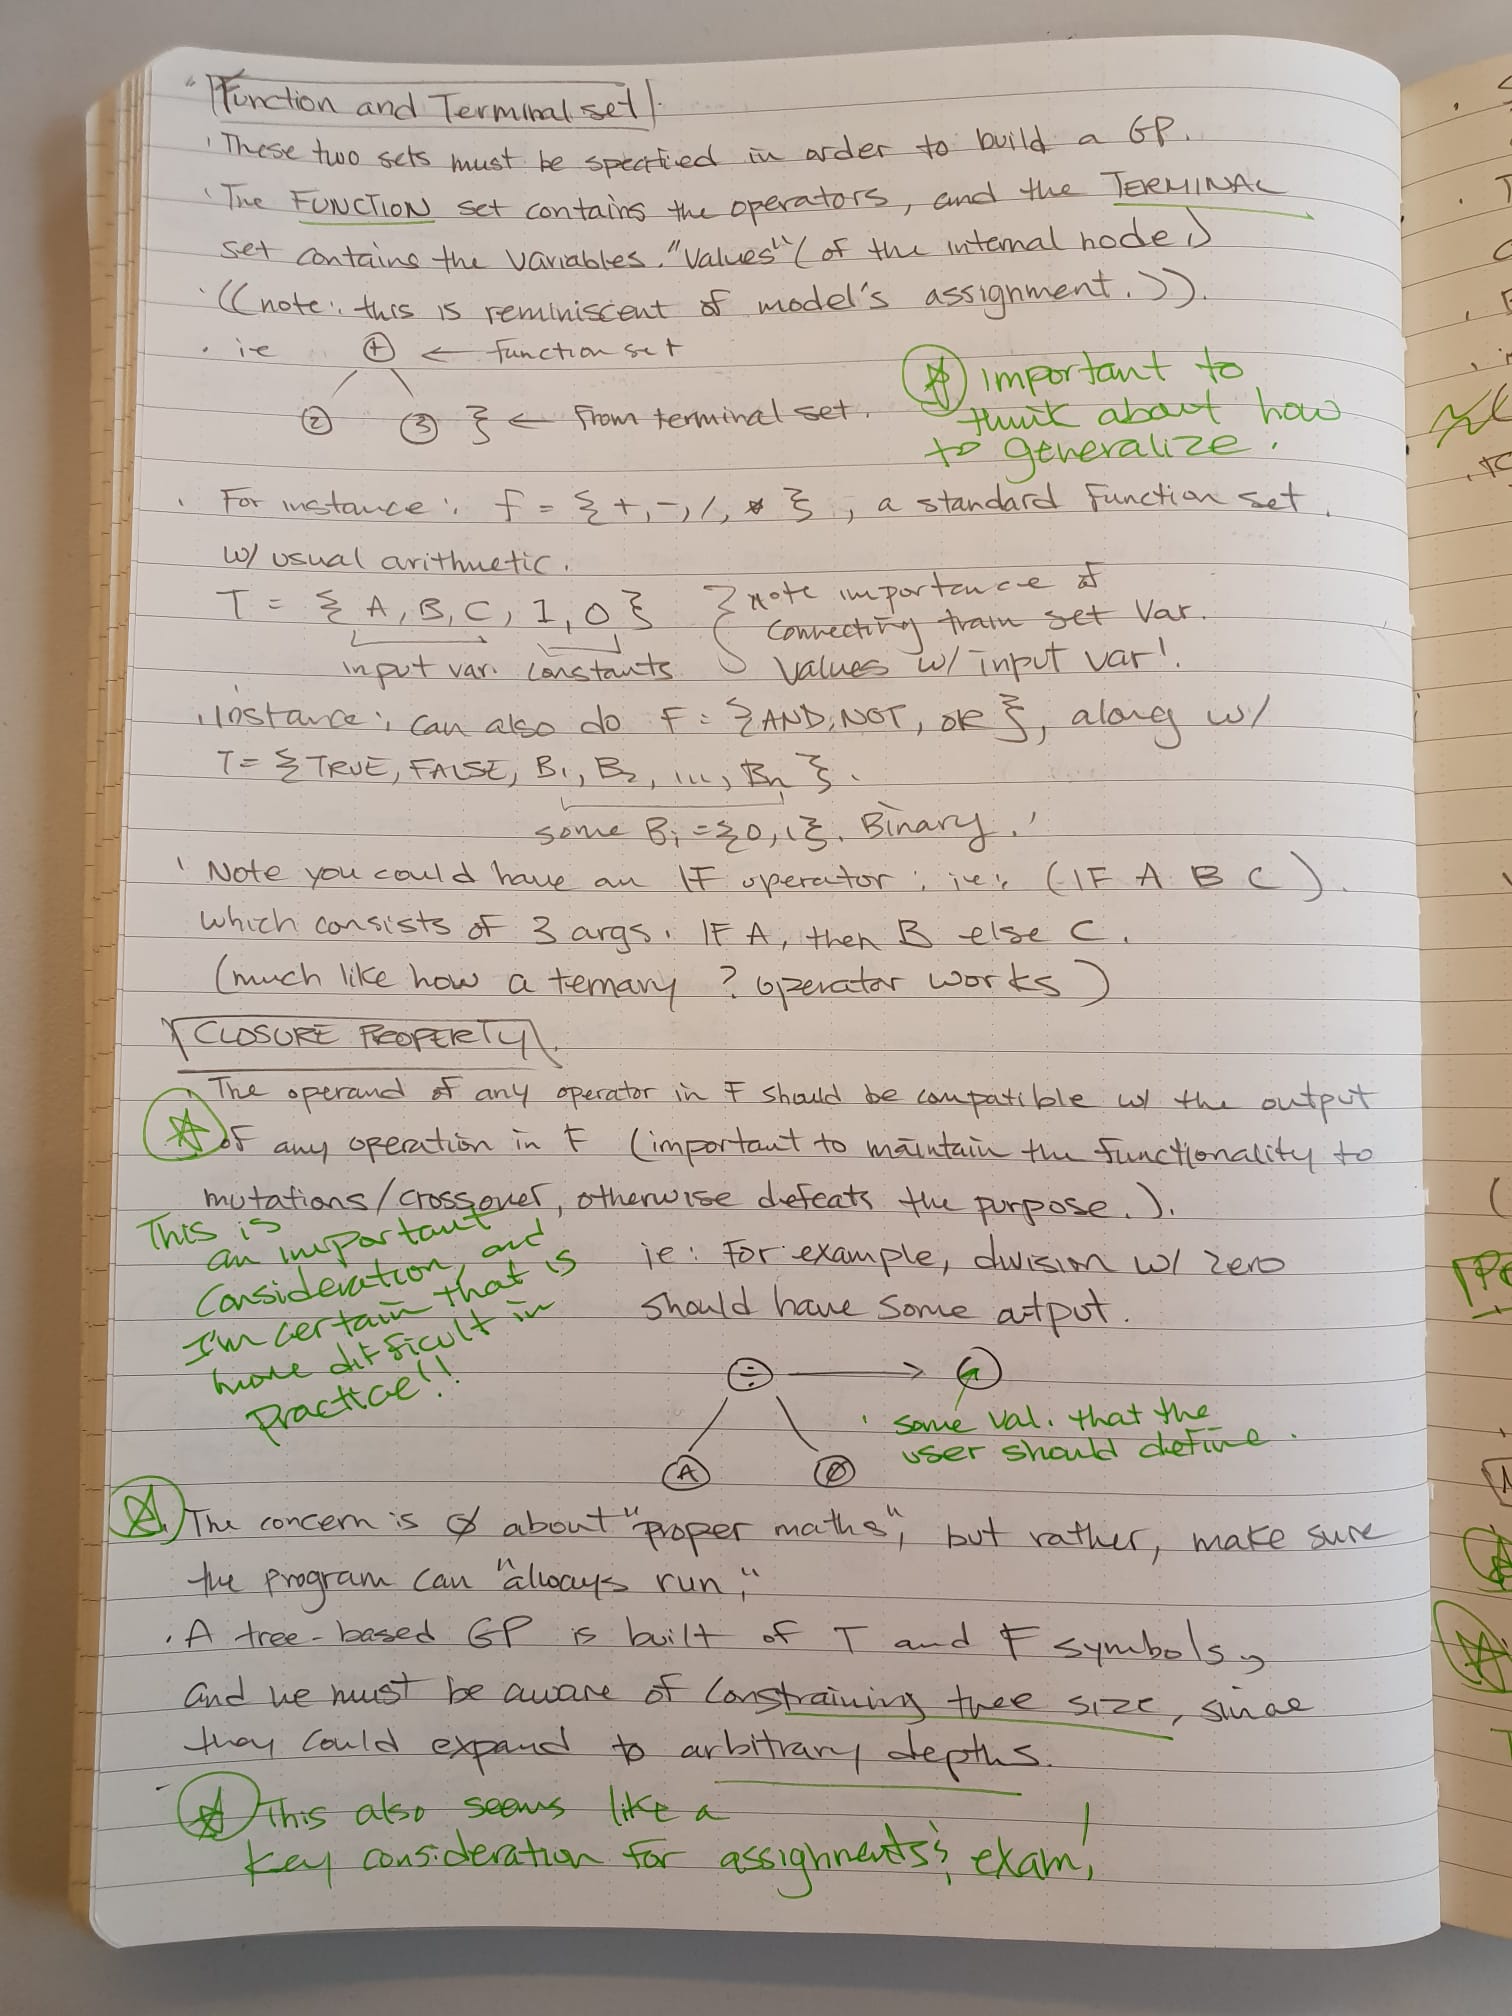 Function and Terminal set
These two sets must be specified in order to build a GP.
The FUNCTION set contains the operators, and the TERMINAL
set contains the variables. "values" (of the internal node)
((note: this is reminiscent of model's assignment.)).
ie + ← function set
2 3 } ← From terminal set.
important to
think about how
to generalize.
For instance: f = {+, -, /, * }, a standard function set.
w/ usual arithmetic.
T = { A, B, C, 1, 0 }
input var. constants
note importance of
connecting train set var.
values w/ input var!
Instance: can also do F = {AND, NOT, OR }, along w/
T = { TRUE, FALSE, B1, B2, ..., Bn }.
some Bi = {0,1}. Binary.
Note you could have an IF operator: ie: (IF A B C).
which consists of 3 args. IF A, then B else C.
(much like how a ternary ? operator works)
CLOSURE PROPERTY
The operand of any operator in F should be compatible w/ the output
of any operation in F (important to maintain the functionality to
mutations/crossover, otherwise defeats the purpose.).
This is
an important
consideration, and
I'm certain that is
more difficult in
practice!!
ie: For example, division w/ zero
should have some output.
÷ →
A Ø
some val. that the
user should define.
The concern is Ø about "proper maths", but rather, make sure
the program can "always run,"
A tree-based GP is built of T and F symbols,
and we must be aware of constraining tree size, since
they could expand to arbitrary depths.
This also seems like a
key consideration for assignments, exam!